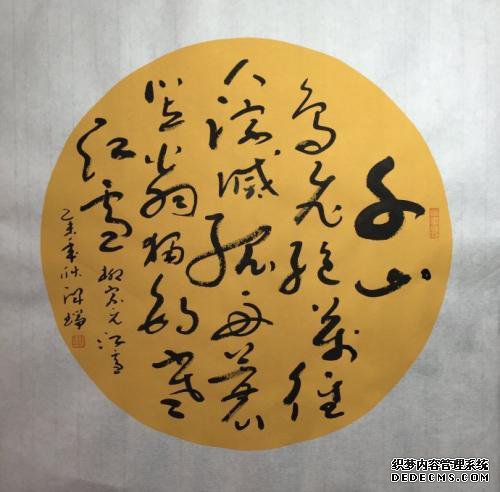 千山
鸟飞绝萬径
人踪灭孤舟蓑
笠翁独钓寒
江雪
柳宗元江雪
织梦内容管理系统
DEDECMS.COM